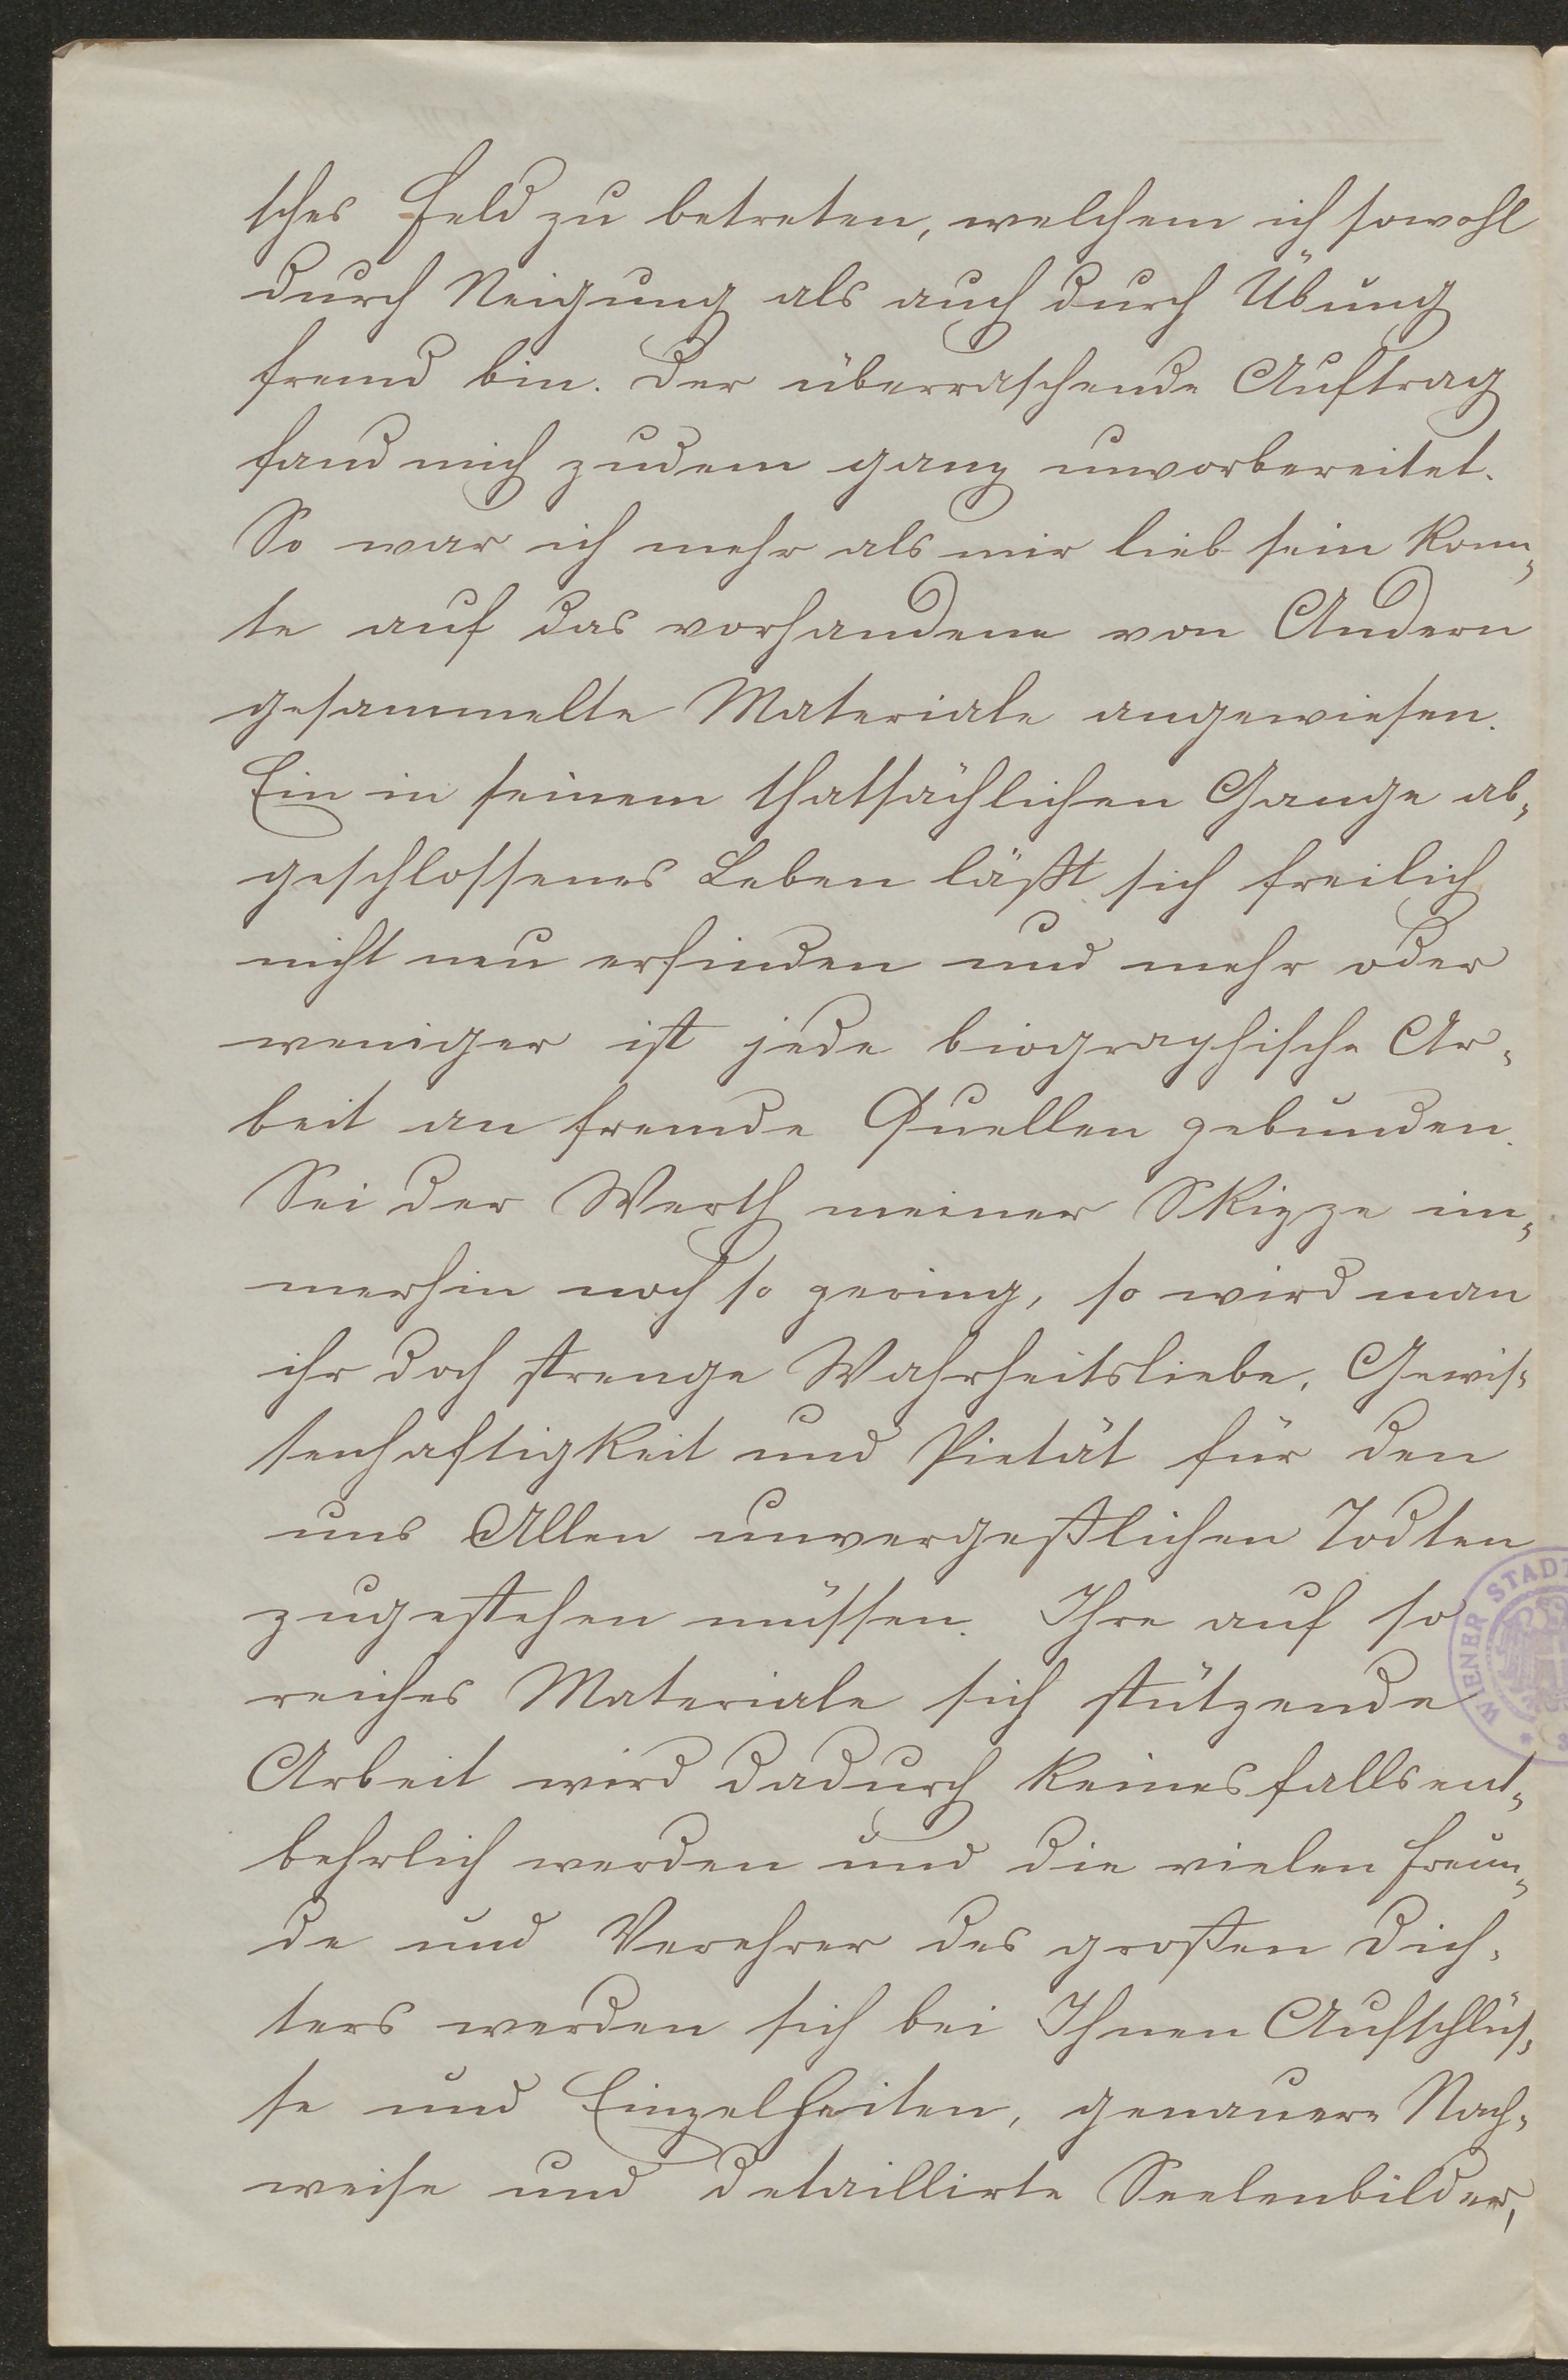 sches Feld zu betreten, welchem ich sowohl
durch Neigung als auch durch Übung
fremd bin. Der überraschende Auftrag
fand mich zudem ganz unvorbereitet.
So war ich mehr als mir lieb sein konn-
te auf das vorhandene von Andern
gesammelte Materiale angewiesen.
Ein in seinem thatsächlichen Gange ab-
geschlossenes Leben läßt sich freilich
nicht neu erfinden und mehr oder
weniger ist jede biographische Ar-
beit an fremde Quellen gebunden.
Sei der Werth meiner Skizze im-
merhin noch so gering, so wird man
ihr doch strenge Wahrheitsliebe, Gewis-
senhaftigkeit und Pietät für den
uns Allen unvergeßlichen Todten
zugestehen müssen. Ihre auf so
reiches Materiale sich stützende
Arbeit wird dadurch keinesfalls ent-
behrlich werden und die vielen Freun-
de und Verehrer des großen Dich-
ters werden sich bei Ihnen Aufschlüs-
se und Einzelheiten, genauere Nach-
weise und detaillirte Seelenbilder,
WIENER STADT